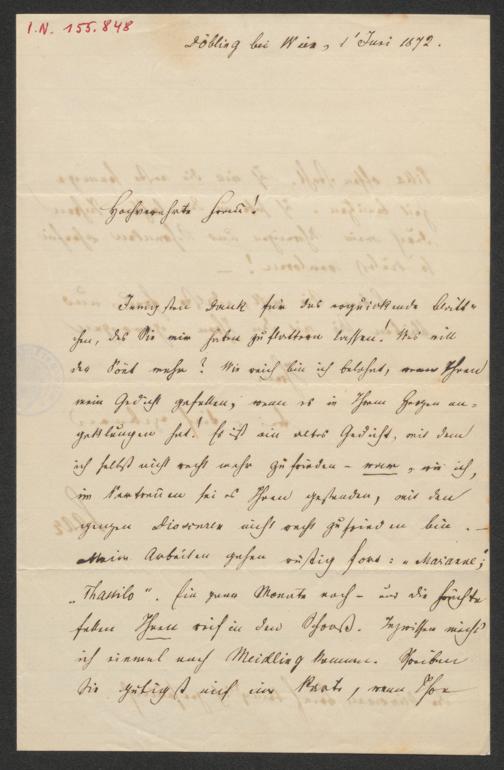 I.N. 155.848
Döbling bei Wien, 1' Juni 1872.
Hochverehrte Frau!
Innigsten Dank für das erquickende Blätt-
chen, das Sie mir haben zuflattern lassen! Was will
der Poet mehr? Wie reich bin ich belohnt, wenn Ihnen
mein Gedicht gefallen; wenn es in Ihrem Herzen an-
geklungen hat! Es ist ein altes Gedicht, mit dem
ich selbst nicht recht mehr zufrieden – war, wie ich,
im Vertrauen sei es Ihnen gestanden, mit den
ganzen Dioscuren nicht recht zufrieden bin. –
Meine Arbeiten gehen rüstig fort: „Marianne“;
„Thassilo“. Ein paar Monate noch – und die Früchte
fallen Ihnen reif in den Schooß. Inzwischen möcht'
ich einmal nach Meidling kommen. Schreiben
Sie gütigst auf einer Karte, wenn Ihre